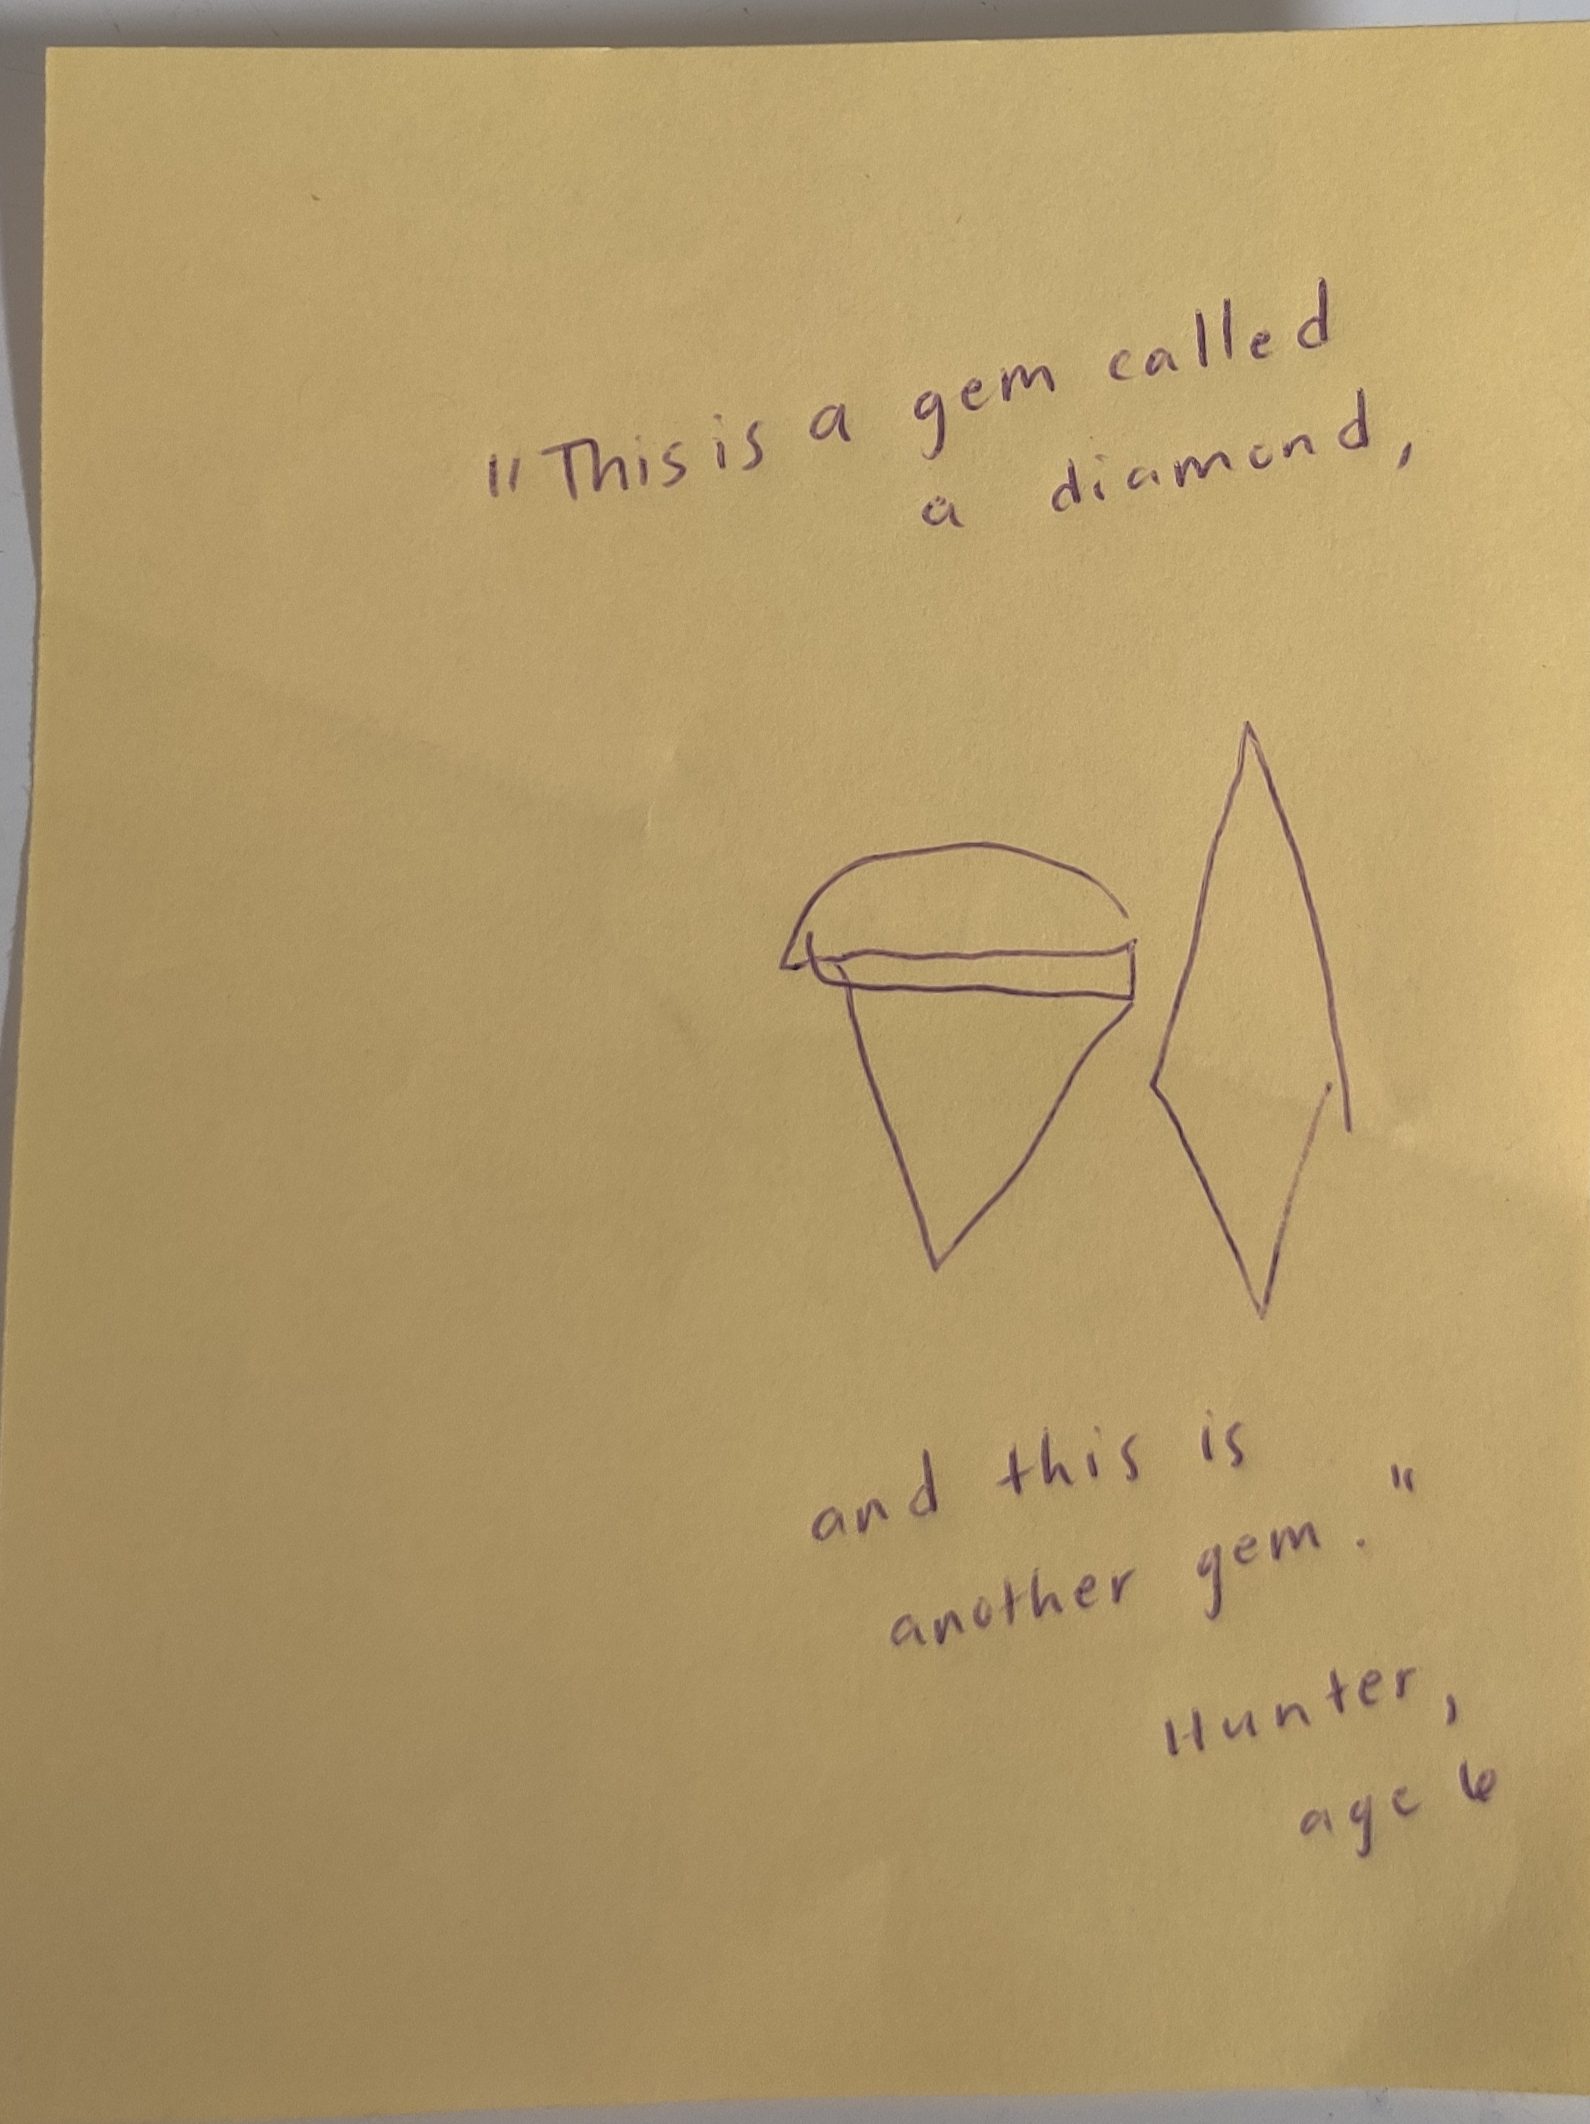 "This is a gem called
a diamond,
and this is
another gem."
Hunter,
age 6